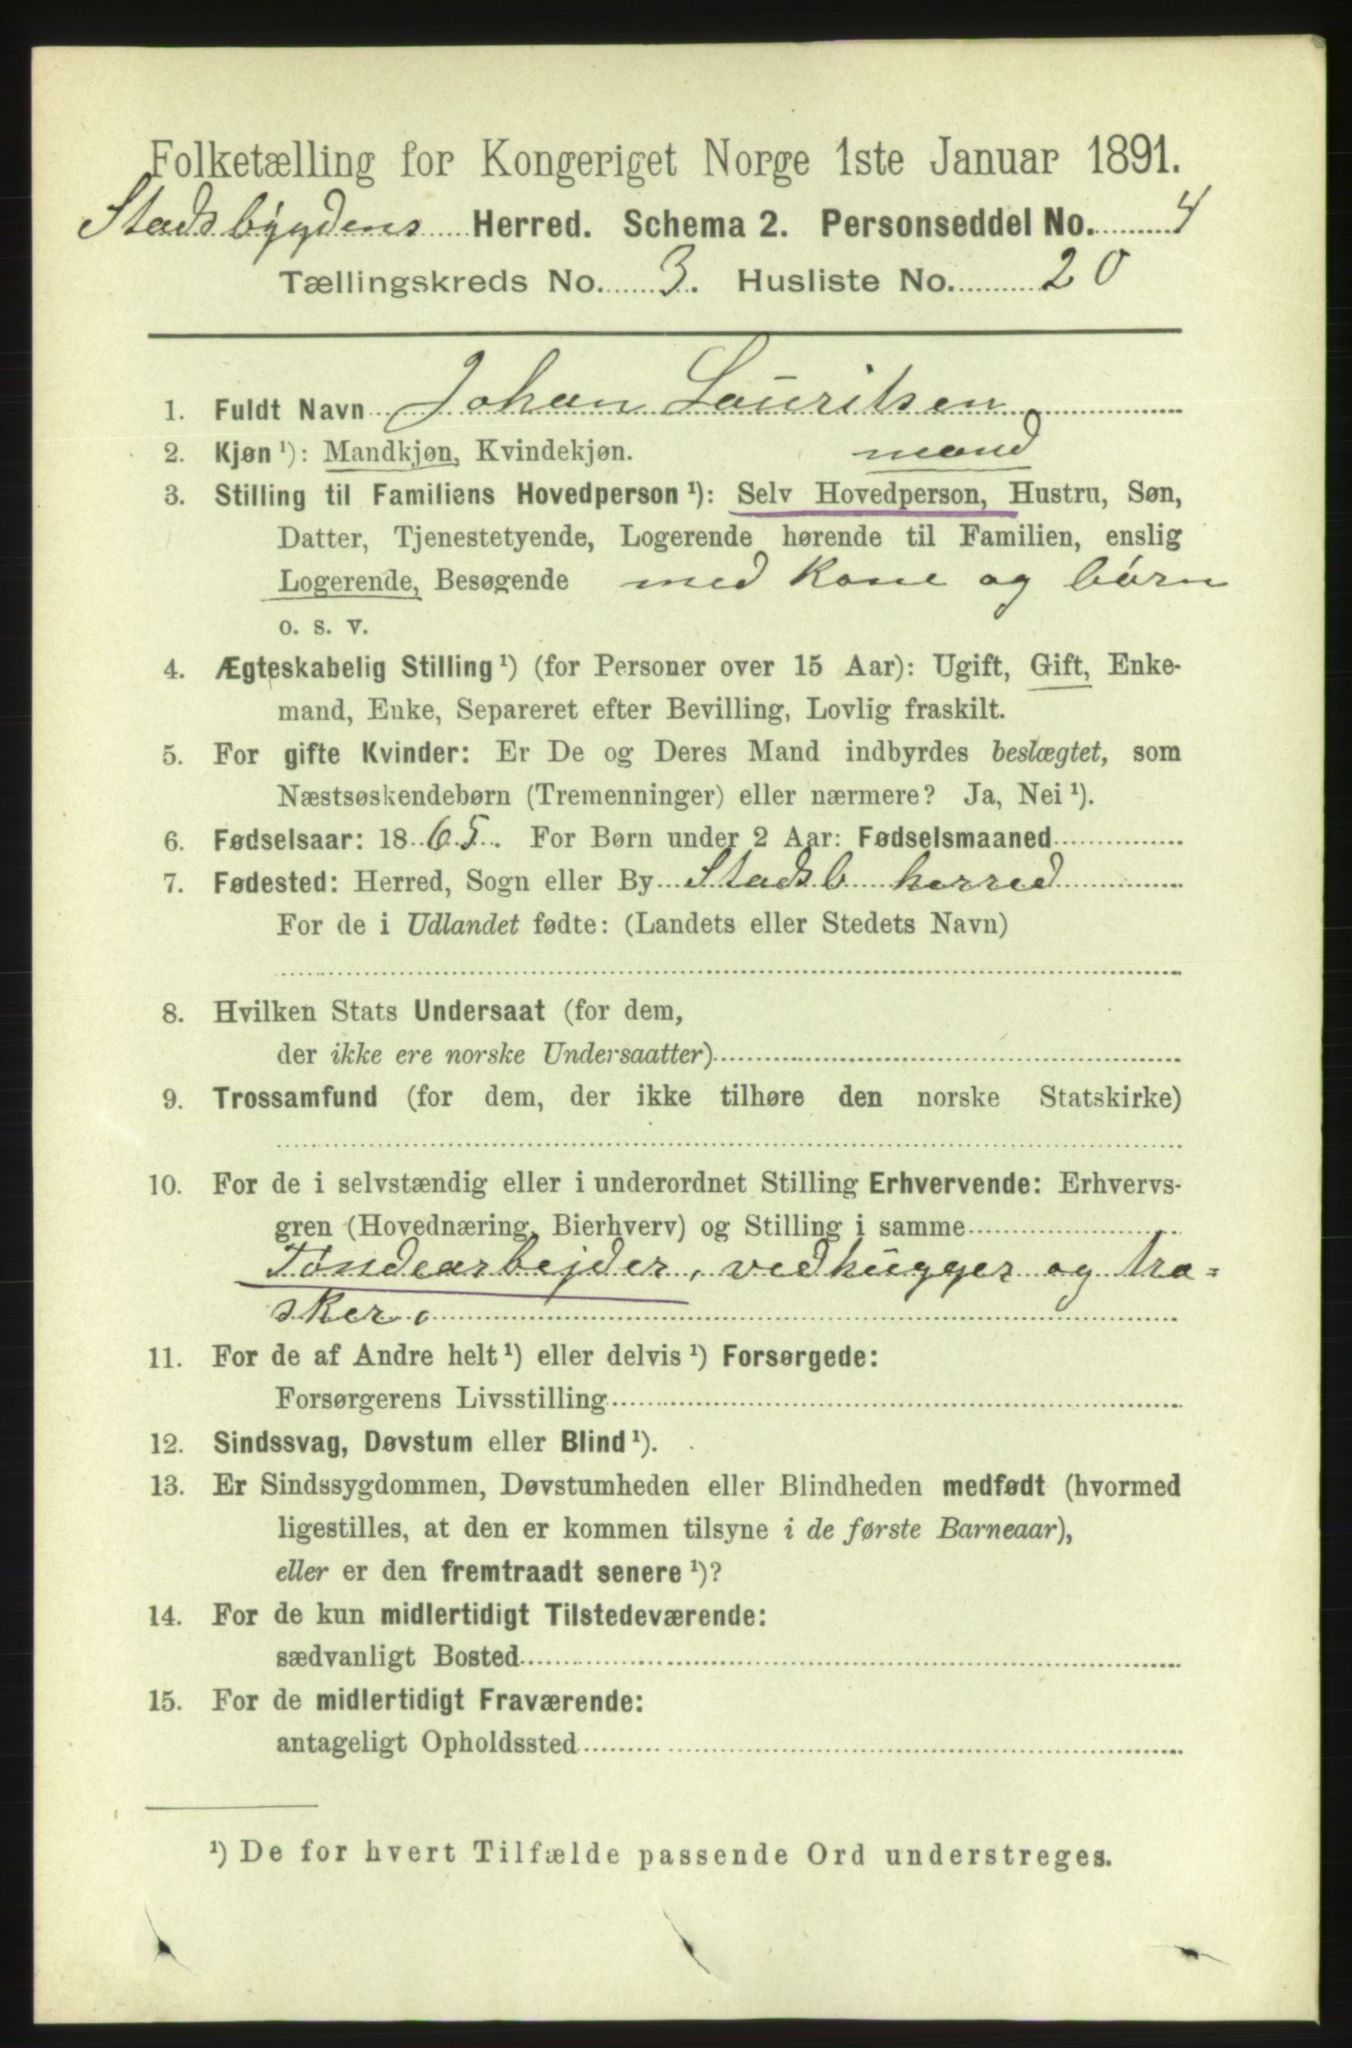 Folketælling for Kongeriget Norge 1ste Januar 1891.
Stadsbygdens Herred. Schema 2. Personseddel No. 4
Tællingskreds No. 3. Husliste No. 20
1. Fuldt Navn Johan Lauritsen
2. Kjøn ¹): Mandkjøn, Kvindekjøn. mand
3. Stilling til Familiens Hovedperson ¹): Selv Hovedperson, Hustru, Søn,
Datter, Tjenestetyende, Logerende hørende til Familien, enslig
Logerende, Besøgende med kone og børn
o. s. v.
4. Ægteskabelig Stilling ¹) (for Personer over 15 Aar): Ugift, Gift, Enke-
mand, Enke, Separeret efter Bevilling, Lovlig fraskilt.
5. For gifte Kvinder: Er De og Deres Mand indbyrdes beslægtet, som
Næstsøskendebørn (Tremenninger) eller nærmere? Ja, Nei ¹).
6. Fødselsaar: 1865. For Børn under 2 Aar: Fødselsmaaned
7. Fødested: Herred, Sogn eller By Stadsb herred
For de i Udlandet fødte: (Landets eller Stedets Navn)
8. Hvilken Stats Undersaat (for dem,
der ikke ere norske Undersaatter)
9. Trossamfund (for dem, der ikke tilhøre den norske Statskirke)
10. For de i selvstændig eller i underordnet Stilling Erhvervende: Erhvervs-
gren (Hovednæring, Bierhverv) og Stilling i samme
Töndearbejder, vedhugger og tra=
sker.
11. For de af Andre helt ¹) eller delvis ¹) Forsørgede:
Forsørgerens Livsstilling
12. Sindssvag, Døvstum eller Blind ¹).
13. Er Sindssygdommen, Døvstumheden eller Blindheden medfødt (hvormed
ligestilles, at den er kommen tilsyne i de første Barneaar),
eller er den fremtraadt senere ¹)?
14. For de kun midlertidigt Tilstedeværende:
sædvanligt Bosted
15. For de midlertidigt Fraværende:
antageligt Opholdssted
¹) De for hvert Tilfælde passende Ord understreges.